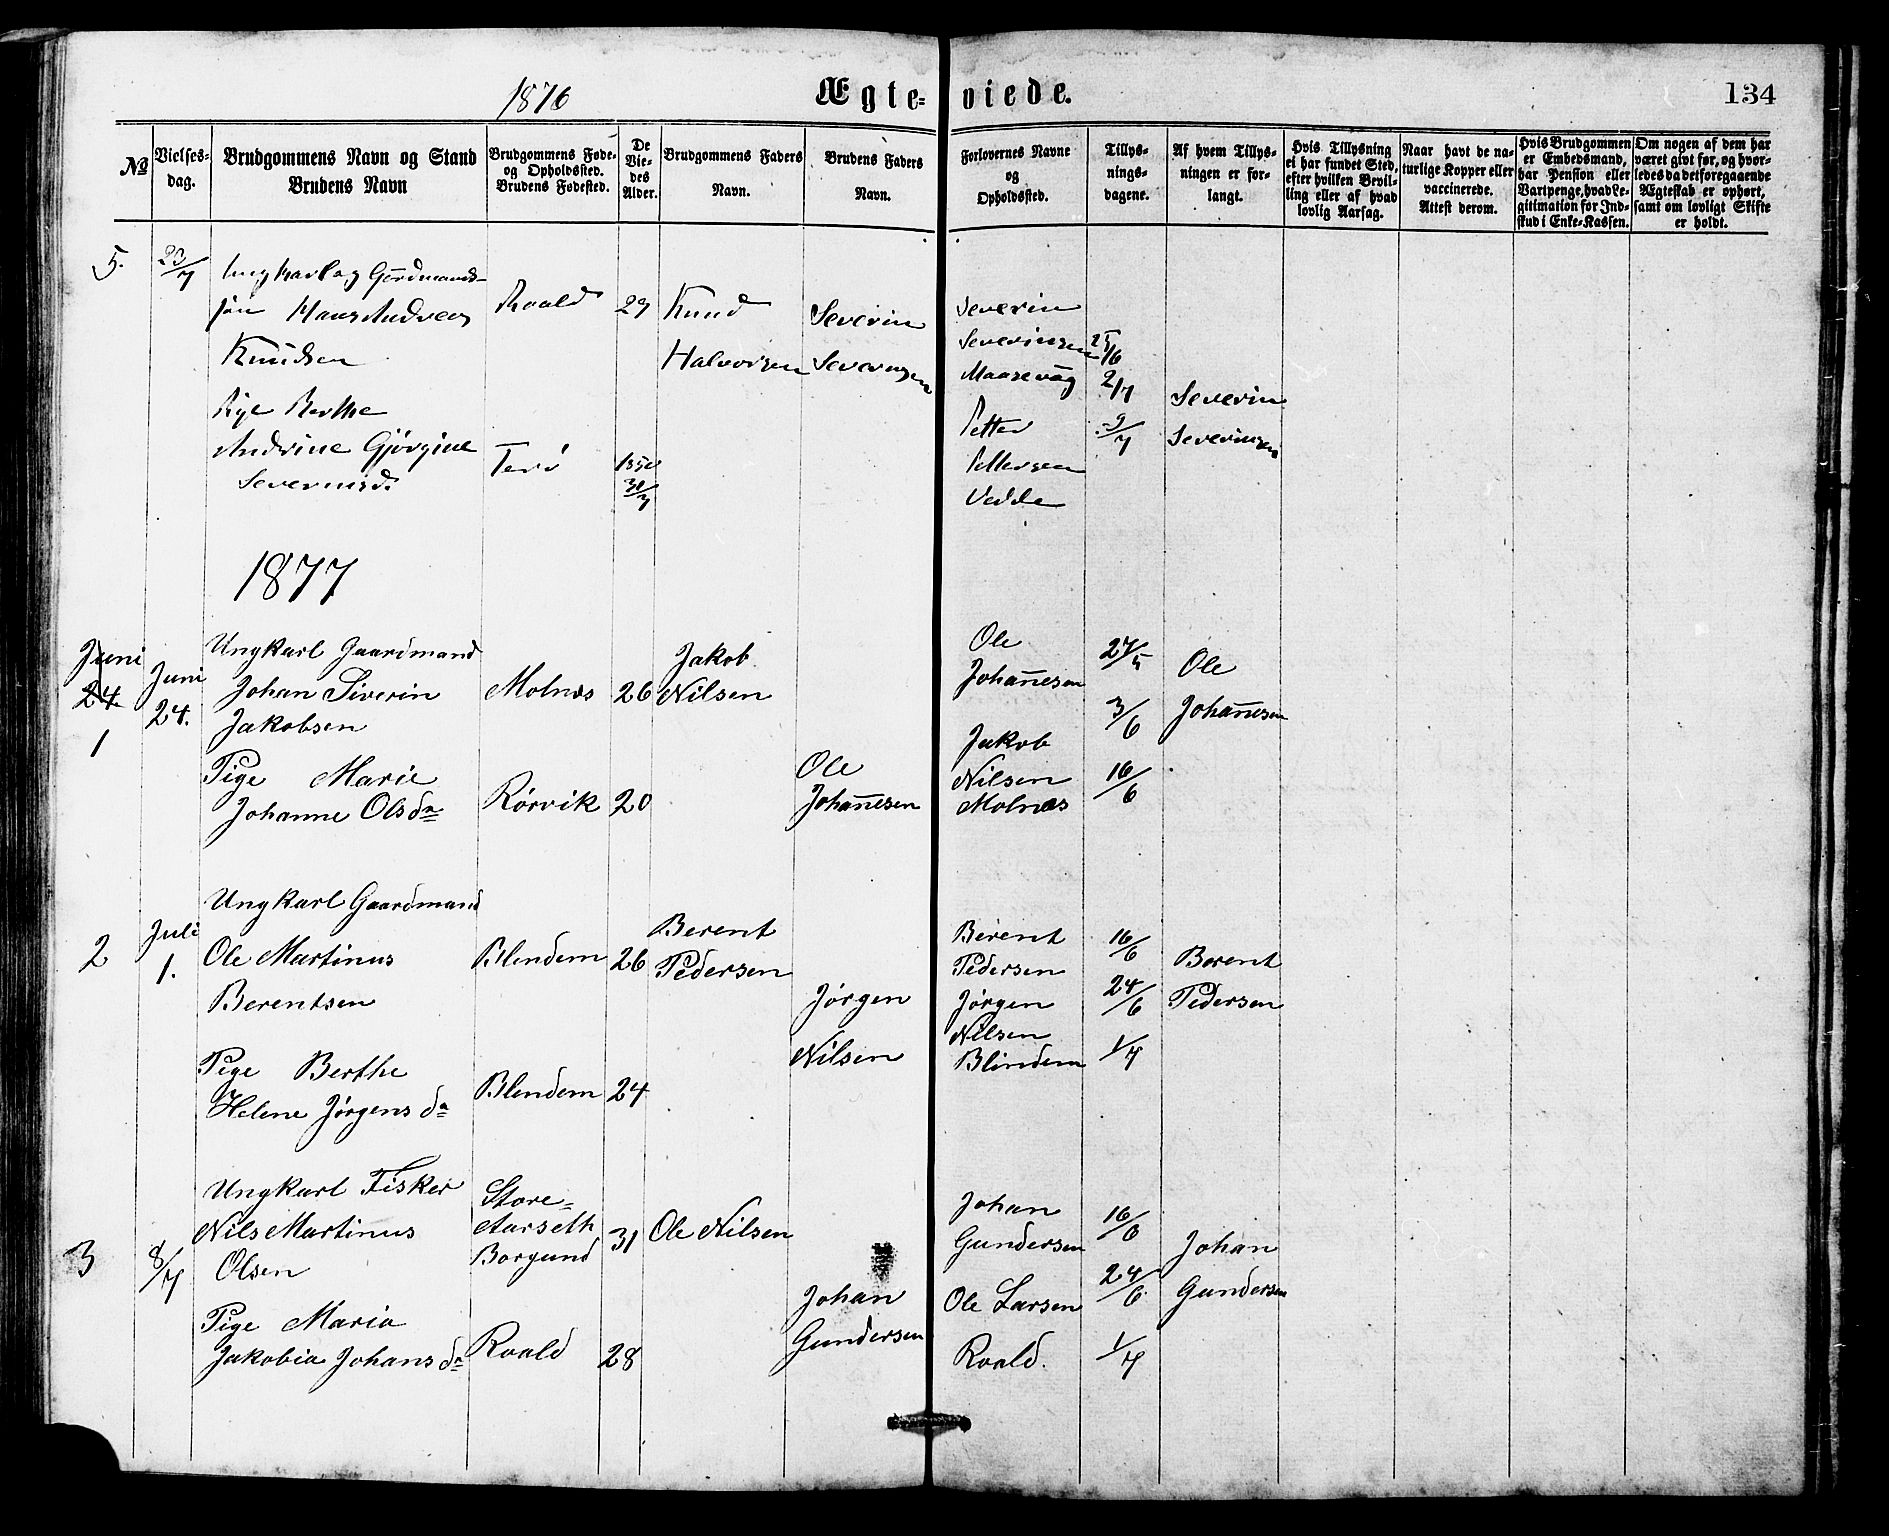 1876
Ægte-
viede.
134
№
Vielses-
dag.
Brudgommens Navn og Stand
Brudens Navn
Brudgommens Føde-
og Opholdssted.
Brudens Fødested.
De
Vie-
des
Alder.
Brudgommens Faders
Navn.
Brudens Faders
Navn.
Forlovernes Navne
og
Opholdssted.
Tillys-
nings-
dagene.
Af hvem Tillys-
ningen er for-
langt.
Hvis Tillysning
ei har fundet Sted,
efter hvilken Bevil-
ling eller af hvad
lovlig Aarsag.
Naar havt de na-
turlige Kopper eller
vaccinerede.
Attest derom.
Hvis Brudgommen
er Embedsmand,
har Pension eller
Vartpenge, hvad Le-
gitimation for Ind-
skud i Enke-Kassen.
Om nogen af dem har
været givt før, og hvor-
ledes da det foregaaende
Ægteskab er ophørt,
samt om lovligt Skifte
er holdt.
5.
Ungkarl og Gårdmands-
søn Hans Andreas
Knudsen
Roald
29
Knud
Halvorsen
Severin
Seversen
Severin
Severinsen
Maasevåg
Petter
Pettersen
Vedde
25/6
2/7
9/7
Severin
Severinsen
Pige Berthe
Andrine Gjørgine
Severinsd.
1850
31/7
1877
Juni
24.
1
Juni
24.
Ungkarl Gaardmand
Johan Siverin
Jakobsen
Molnæs
26
Jakob
Nilsen
Ole
Johannesen
Jakob
Nilsen
Molnæs
27/5
3/6
16/6
Ole
Johannesen
Pige Marie
Johanne Olsdr
Rørvik
20
Ole
Johannesen
2
Juli
1.
Ungkarl Gaardmand
Ole Martinus
Berentsen
Blendem
26
Berent
Pedersen
Berent
Pedersen
Jørgen
Nilsen
Blindem
16/6
24/6
1/7
Berent
Pedersen
Pige Berthe
Helene Jørgensdr
Blendem
24
Jørgen
Nilsen
3
8/7
Ungkarl Fisker
Nils Martinus
Olsen
Store-
Aarseth
Borgund
31
Ole Nilsen
Johan
Gundersen
Ole Larsen
Roald.
16/6
24/6
1/7
Johan
Gundersen
Pige Maria
Jakobia Johansdr
Roald
28
Johan
Gundersen